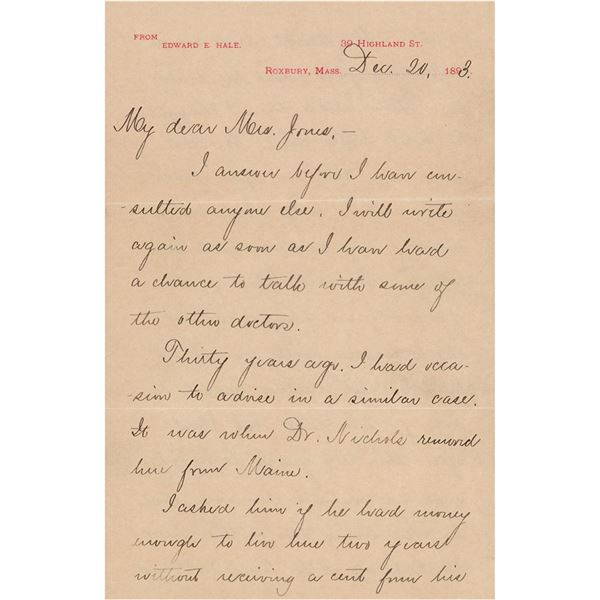 FROM
EDWARD E. HALE.
39 HIGHLAND ST.
ROXBURY, MASS. Dec. 20, 1893.
My dear Mrs. Jones,—
I answer before I have con-
-sulted anyone else. I will write
again as soon as I have had
a chance to talk with some of
the other doctors.
Thirty years ago. I had occa-
sion to advise in a similar case.
It was when Dr. Nichols removed
here from Maine.
I asked him if he had money
enough to live here two years
without receiving a cent from his